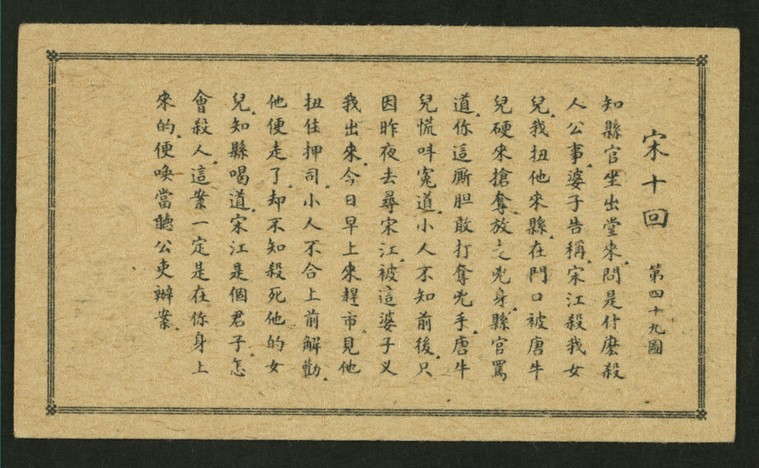 宋十回 第四十九圖
知縣官坐出堂來.問是什麽殺
人公事.婆子告稱.宋江殺我女
兒.我扭他來縣.在門口被唐牛
兒硬來搶奪.放之兇身.縣官罵
道.你這厮胆敢打奪兇手.唐牛
兒慌呌寃道.小人不知前後.只
因昨夜去尋宋江.被這婆子叉
我出來.今日早上來趕市.見他
扭住押司.小人不合上前解勸.
他便走了.却不知殺死他的女
兒.知縣喝道.宋江是個君子.怎
會殺人.這案一定是在你身上
來的.便喚當聽公吏辦案.